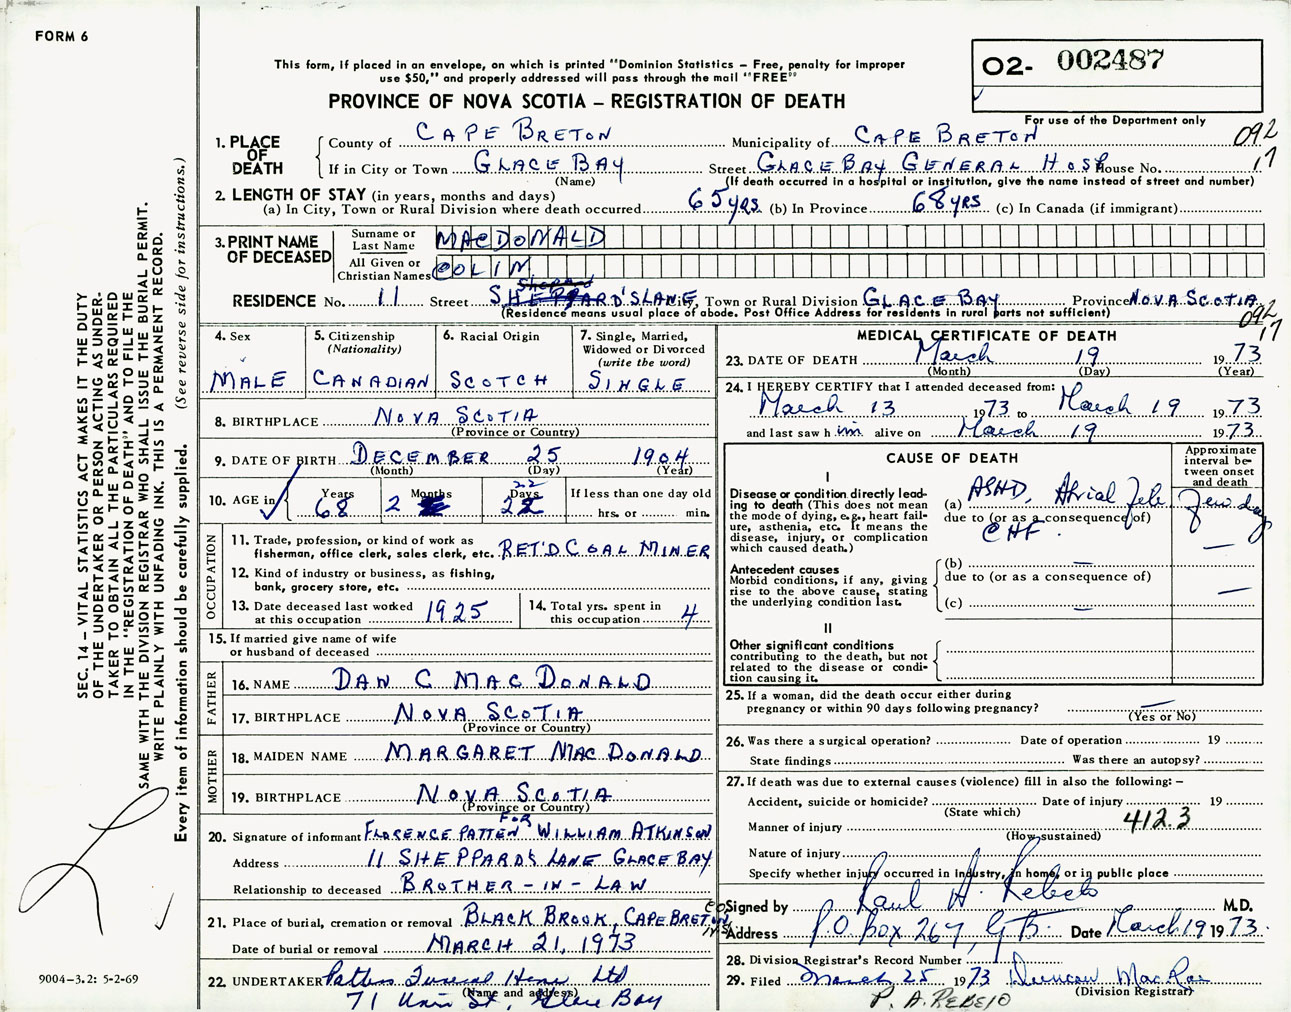 FORM 6
This form, if placed in an envelope, on which is printed "Dominion Statistics – Free, penalty for improper
use $50," and properly addressed will pass through the mail "FREE"
02- 002487
PROVINCE OF NOVA SCOTIA – REGISTRATION OF DEATH
For use of the Department only
1. PLACE OF DEATH County of CAPE BRETON Municipality of CAPE BRETON 092
If in City or Town GLACE BAY Street GLACE BAY GENERAL HOSP House No. 17
(Name) (If death occurred in a hospital or institution, give the name instead of street and number)
2. LENGTH OF STAY (in years, months and days)
(a) In City, Town or Rural Division where death occurred 65 yrs (b) In Province 68 yrs (c) In Canada (if immigrant)
3. PRINT NAME OF DECEASED Surname or Last Name MACDONALD
All Given or Christian Names COLIN
RESIDENCE No. 11 Street SHEPPARD'S LANE, Town or Rural Division GLACE BAY Province NOVA SCOTIA
(Residence means usual place of abode. Post Office Address for residents in rural parts not sufficient) 092
17
4. Sex 5. Citizenship (Nationality) 6. Racial Origin 7. Single, Married, Widowed or Divorced (write the word)
MALE CANADIAN SCOTCH SINGLE
8. BIRTHPLACE NOVA SCOTIA
(Province or Country)
9. DATE OF BIRTH DECEMBER 25 1904
(Month) (Day) (Year)
10. AGE in Years 68 Months 2 Days 22 If less than one day old
hrs. or min.
OCCUPATION
11. Trade, profession, or kind of work as
fisherman, office clerk, sales clerk, etc. RET'D COAL MINER
12. Kind of industry or business, as fishing,
bank, grocery store, etc.
13. Date deceased last worked at this occupation 1925 14. Total yrs. spent in this occupation 4
15. If married give name of wife
or husband of deceased
FATHER
16. NAME DAN C MAC DONALD
17. BIRTHPLACE NOVA SCOTIA
(Province or Country)
MOTHER
18. MAIDEN NAME MARGARET MAC DONALD
19. BIRTHPLACE NOVA SCOTIA
(Province or Country)
20. Signature of informant FLORENCE PATTEN FOR WILLIAM ATKINSON
Address 11 SHEPPARD'S LANE GLACE BAY
Relationship to deceased BROTHER-IN-LAW
21. Place of burial, cremation or removal BLACK BROOK, CAPE BRETON CO N.S.
Date of burial or removal MARCH 21, 1973
22. UNDERTAKER Patten Funeral Home Ltd
(Name and address)
71 Union St, Glace Bay
MEDICAL CERTIFICATE OF DEATH
23. DATE OF DEATH March 19 1973
(Month) (Day) (Year)
24. I HEREBY CERTIFY that I attended deceased from:
March 13 1973 to March 19 1973
and last saw him alive on March 19 1973.
CAUSE OF DEATH
Approximate interval between onset and death
I
Disease or condition directly leading to death (This does not mean the mode of dying, e.g., heart failure, asthenia, etc. It means the disease, injury, or complication which caused death.)
(a) ASHD, Atrial Feb. few days
due to (or as a consequence of)
CHF.
Antecedent causes
Morbid conditions, if any, giving rise to the above cause, stating the underlying condition last.
(b) –
due to (or as a consequence of)
(c) –
II
Other significant conditions
contributing to the death, but not related to the disease or condition causing it.
25. If a woman, did the death occur either during
pregnancy or within 90 days following pregnancy? –
(Yes or No)
26. Was there a surgical operation? Date of operation 19
State findings Was there an autopsy?
27. If death was due to external causes (violence) fill in also the following: –
Accident, suicide or homicide? Date of injury 19
(State which)
Manner of injury 412.3
(How sustained)
Nature of injury
Specify whether injury occurred in Industry, in home, or in public place
Signed by Raul A. Rebelo M.D.
Address P.O. Box 267, G.B. Date March 19 1973.
28. Division Registrar's Record Number
29. Filed March 25 1973 Duncan MacRae
(Division Registrar)
P. A. REBEJO
SEC. 14 – VITAL STATISTICS ACT MAKES IT THE DUTY
OF THE UNDERTAKER OR PERSON ACTING AS UNDER-
TAKER TO OBTAIN ALL THE PARTICULARS REQUIRED
IN THE "REGISTRATION OF DEATH" AND TO FILE THE
SAME WITH THE DIVISION REGISTRAR WHO SHALL ISSUE THE BURIAL PERMIT.
WRITE PLAINLY WITH UNFADING INK. THIS IS A PERMANENT RECORD.
Every item of information should be carefully supplied. (See reverse side for instructions.)
9004-3.2: 5-2-69